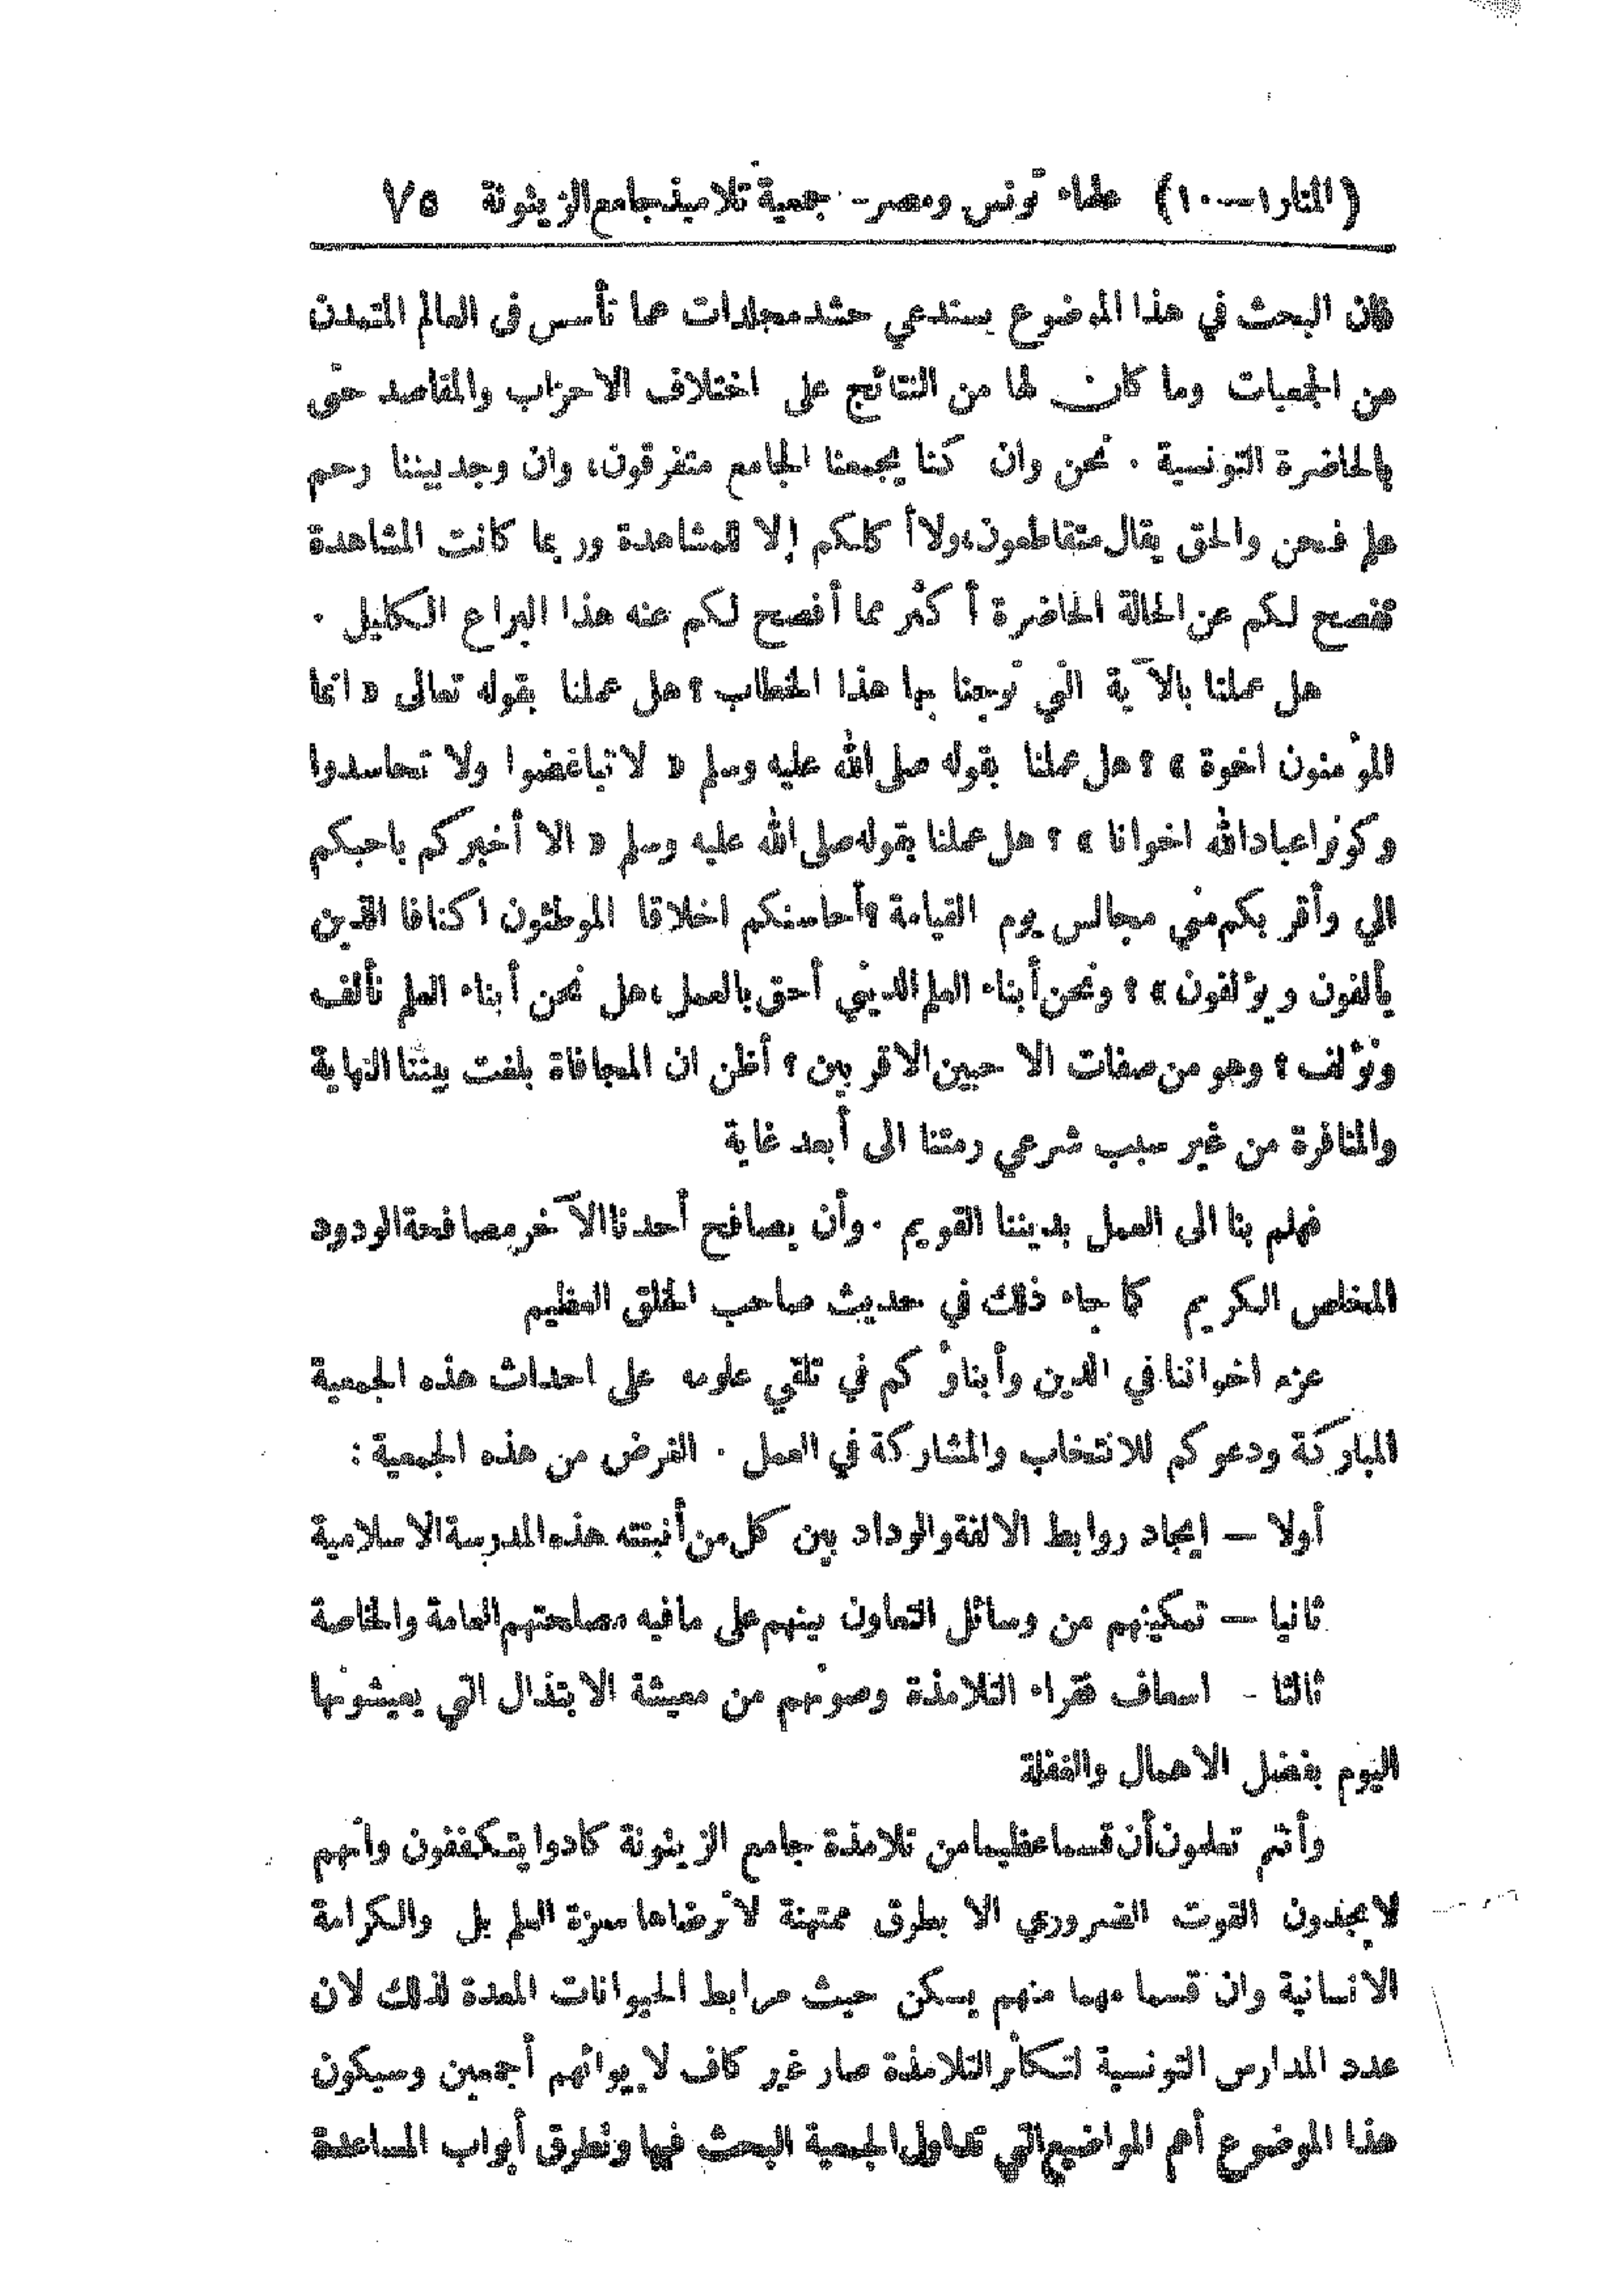 (المنار ١ــ١٠) علماء تونس ومصر - جمعية تلاميذ جامع الزيتونة ٧٥
فان البحث في هذا الموضوع يستدعي حشد مجلدات عما تأسس في العالم المتمدن
من الجمعيات وما كان لها من النتائج على اختلاف الاحزاب والمقاصد حتى
بالحاضرة التونسية . نحن وان كنا يجمعنا الجامع متفرقون، وان وجد بيننا رحم
علم فنحن والحق يقال متقاطعون، ولا أكلكم إلا للمشاهدة وربما كانت المشاهدة
تفصح لكم عن الحالة الحاضرة أكثر مما أفصح لكم عنه هذا اليراع الكليل .
هل عملنا بالآية التي توجنا بها هذا الخطاب ؟ هل عملنا بقوله تعالى « انما
المؤمنون اخوة » ؟ هل عملنا بقوله صلى الله عليه وسلم « لا تباغضوا ولا تحاسدوا
وكونوا عباد الله اخوانا » ؟ هل عملنا بقوله صلى الله عليه وسلم « الا أخبركم باحبكم
الي وأقربكم مني مجالس يوم القيامة ؟ أحاسنكم اخلاقا الموطئون اكنافا الذين
يألفون ويؤلفون » ؟ ونحن أبناء العلم الديني أحق بالعمل ، هل نحن أبناء العلم نألف
ونؤلف ؟ وهو من صفات الاحبين الاقربين ؟ أظن ان المجافاة بلغت بيننا النهاية
والمنافرة من غير سبب شرعي رمتنا الى أبعد غاية
فهلم بنا الى العمل بديننا القويم . وأن يصافح أحدنا الآخر مصافحة الودود
المخلص الكريم كما جاء ذلك في حديث صاحب الخلق العظيم
عزم اخواننا في الدين وأبناؤكم في تلقي علومه على احداث هذه الجمعية
المباركة ودعوكم للانتخاب والمشاركة في العمل . الغرض من هذه الجمعية :
أولا — ايجاد روابط الالفة والوداد بين كل من أنبتته هذه المدرسة الاسلامية
ثانيا — تمكينهم من وسائل التعاون بينهم على ما فيه مصلحتهم العامة والخاصة
ثالثا - اسعاف فقراء التلامذة وصونهم من معيشة الابتذال التي يعيشونها
اليوم بفضل الاهمال والغفلة
وأنتم تعلمون أن قسما عظيما من تلامذة جامع الزيتونة كادوا يتكففون وانهم
لا يجدون القوت الضروري الا بطرق ممتهنة لا ترضاها عزة العلم بل والكرامة
الانسانية وان قسما مهما منهم يسكن حيث مرابط الحيوانات المعدة لذلك لان
عدد المدارس التونسية لتكاثر التلامذة صار غير كاف لا يوائهم أجمعين وسيكون
هذا الموضوع أهم المواضيع التي تتداول الجمعية البحث فيها وتطرق أبواب المساعدة